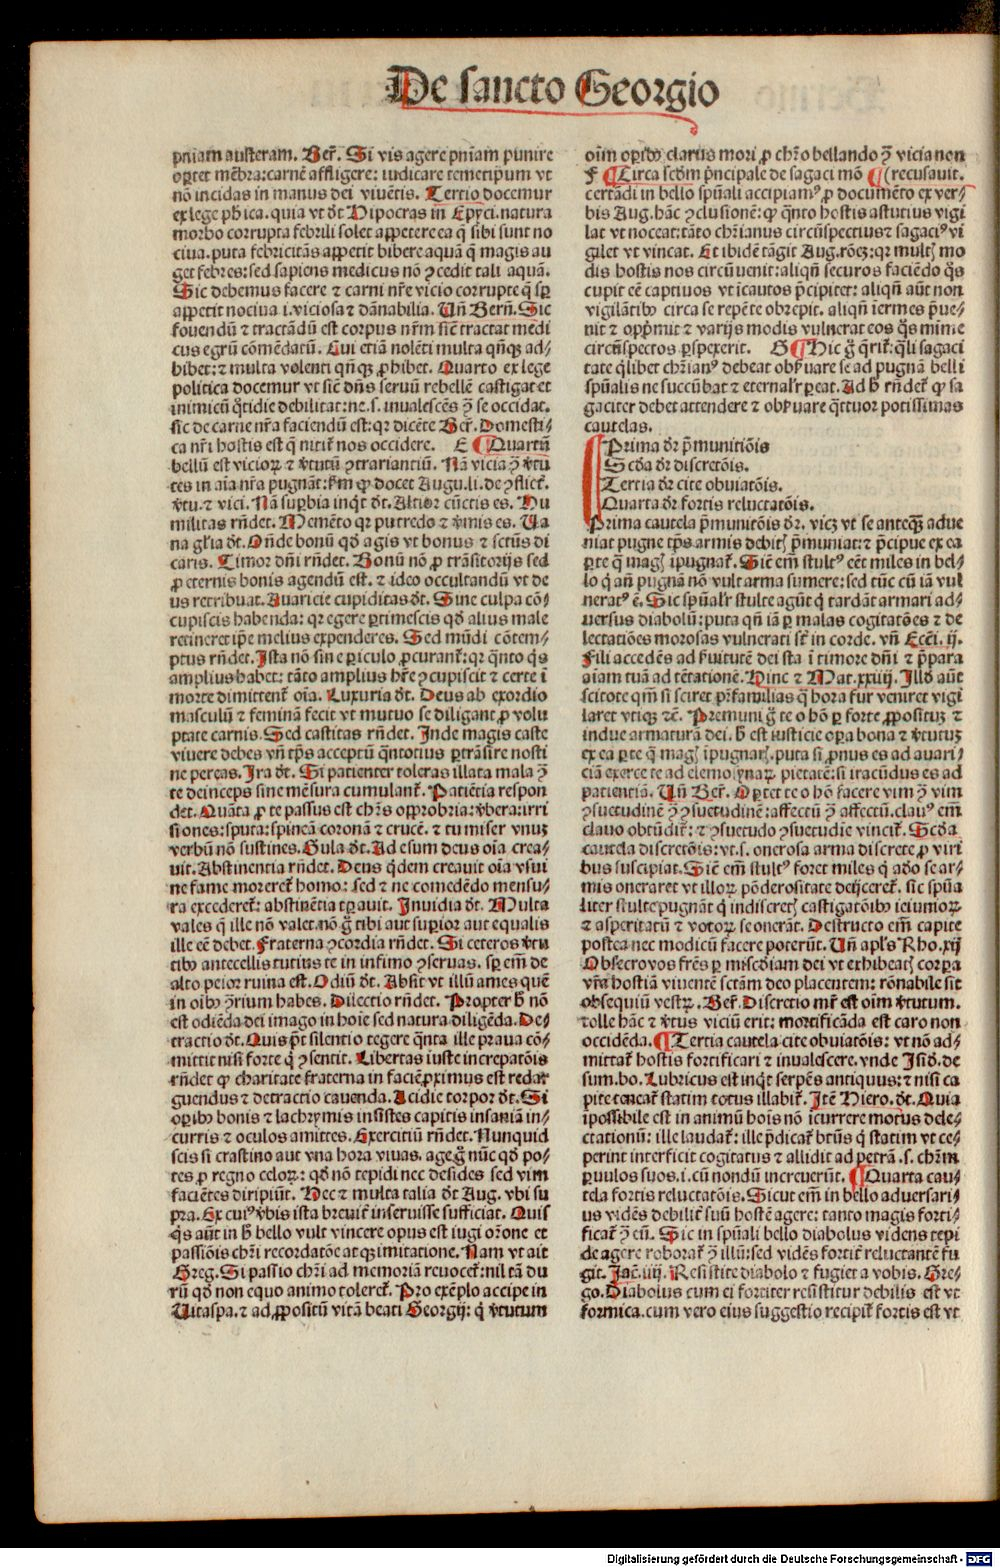 De sancto Georgio
pniam austeram. Ber̃. Si vis agere pniam punire
oportet mẽbra: carnẽ affligere: iudicare temetipsum vt
nõ incidas in manus dei viuẽtis. Tertio docemur
ex lege phica. quia vt dt̃ Hipocras in Epyci. natura
morbo corrupta febrili solet appetere ea q̃ sibi sunt no
ciua. puta febricitãs appetit bibere aquã q̃ magis au
get febres: sed sapiens medicus nõ ꝯcedit tali aquã.
Sic debemus facere & carni nr̃e vicio corrupte q̃ sp̱
appetit nociua i. viciosa & dãnabilia. Vñ Berñ. Sic
fouendũ & tractãdũ est corpus nr̃m sicẽ tractat medi
cus egrũ cõmẽdatũ. Cui etiã nolẽti multa qñqꝫ ad⸗
hibet: & multa volenti qñqꝫ ꝓhibet. Quarto ex lege
politica docemur vt sicẽ dñs seruũ rebellẽ castigat et
inimicũ q̃tidie debilitat: ne. s. inualescẽs ꝯ̃ se occidat.
sic de carne nr̃a faciendũ est: qꝛ dicẽte Ber̃. Domesti⸗
ca nr̃i hostis est q̃ nitit̃ nos occidere. E ¶ Quartũ
bellũ est vicioꝝ & v̾tutũ ꝯtrariantiũ. Nã vicia ꝯ̃ v̾tu
tes in aĩa nr̃a pugnãt: fm̃ ꝙ docet Augu. li. de ꝯflict̃.
v̾tu. & vici. Nã supbia inqt̃ dt̃. Altior cũctis es. Hu
militas rñdet. Memẽto qꝛ putredo & v̾mis es. Va
na gl̃ia dt̃. Oñde bonũ qd̃ agis vt bonus & sctũs di
caris. Timor dni rñdet. Bonũ nõ ꝓ trãsitorijs sed
ꝓ eternis bonis agendũ est. & ideo occultandũ vt de
us retribuat. Auaricie cupiditas dt̃. Sine culpa cõ⸗
cupiscis habenda: qꝛ egere ꝑtimescis qd̃ alius male
retineret ip̃e melius expenderes. Sed mũdi cõtem⸗
ptus rñdet. Ista nõ sine ꝑiculo ꝓcurant̃: qꝛ q̃nto q̃s
amplius habet: tãto amplius hr̃e ꝯcupiscit & certe ĩ
morte dimittent̃ oĩa. Luxuria dt̃. Deus ab exordio
masculũ & feminã fecit vt mutuo se diligant ꝓ volu
ptate carnis. Sed castitas rñdet. Inde magis caste
viuere debes vñ tp̃s acceptũ q̃ntotius ꝑtrãsire nosti
ne pereas. Ira dt̃. Si patienter toleras illata mala ꝯ̃
te deinceps sine mẽsura cumulant̃. Patiẽtia respon
det. Quãta ꝓ te passus est chr̃s opprobria: v̾bera: irri
siones: sputa: spineã coronã & crucẽ. & tu miser vnuꝫ
verbũ nõ sustines. Gula dt̃. Ad esum deus oĩa crea⸗
uit. Abstinentia rñdet. Deus q̃dem creauit oĩa vsui
ne fame moreret̃ homo: sed & ne comedẽdo mensu⸗
ra excederet̃: abstinẽtiã tp̃auit. Inuidia dt̃. Multa
vales q̃ ille nõ valet. nõ g̃ tibi aut supior aut equalis
ille eẽ debet. Fraterna ꝯcordia rñdet. Si ceteros v̾tu
tibꝰ antecellis tutius te in infimo ꝯseruas. sp̱ em̃ de
alto peior ruina est. Odiũ dt̃. Absit vt illũ ames quẽ
in oĩbꝰ ꝯ̃rium habes. Dilectio rñdet. Propter h̾ nõ
est odiẽda dei imago in hoĩe sed natura diligẽda. De⸗
tractio dt̃. Quis p̃t silentio tegere q̃nta ille praua cõ⸗
mittit nisi forte q̃ ꝯsentit. Libertas iuste increpatõis
rñdet ꝙ charitate fraterna in faciẽ ꝓximus est redar
guendus & detractio cauenda. Acidie torpor dt̃. Si
opibꝰ bonis & lachrymis insistes capitis insaniã in⸗
curris & oculos amittes. Exercitiũ rñdet. Nunquid
scis si crastino aut vna hora viuas. age g̃ nũc qd̃ po⸗
tes ꝓ regno celoꝝ: qd̃ nõ tepidi nec desides sed vim
faciẽtes diripiũt. Hec & multa talia dt̃ Aug. vbi su
pra. Ex cuiꝰ v̾bis ista breuit̃ inseruisse sufficiat. Quis
q̃s aũt in h̾ bello vult vincere opus est iugi or̃one et
passiõis chr̃i recordatõe atqꝫ imitatione. Nam vt ait
Greg. Si passio chr̃i ad memoriã reuocet̃: nil tã du
rũ qd̃ non equo animo toleret̃. Pro exẽplo accipe in
Vitaspa. & ad ꝓpositũ vitã beati Georgij: q̃ v̾tutum
oĩm opibꝰ clarus mori ꝓ chr̃o bellando ꝯ̃ vicia non
F ¶ Circa scd̃m p̃ncipale de sagaci mõ ¶ (recusauit.
certãdi in bello spũali accipiamꝰ ꝓ documẽto ex ver⸗
bis Aug. hãc ꝯclusionẽ: ꝙ q̃nto hostis astutius vigi
lat vt noceat: tãto chr̃ianus circũspectius & sagaciꝰ vi
gilet vt vincat. Et ibidẽ tãgit Aug. rõeꝫ: qꝛ multꝭ mo
dis hostis nos circũuenit: aliqñ securos faciẽdo q̃s
cupit eẽ captiuos vt ĩcautos p̃cipitet: aliqñ aũt non
vigilãtibꝰ circa se repẽte obrepit. aliqñ iermes p̃ue⸗
nit & opp̃mit & varijs modis vulnerat eos q̃s minꝰ
circũspectos ꝑspexerit. G ¶ Hic g̃ q̃rit̃: q̃li sagaci
tate q̃libet chr̃ianꝰ debeat obseruare se ad pugnã belli
spũalis ne succũbat & eternal̃r ꝑeat. Ad h̾ rñdet̃ ꝙ sa
gaciter debet attendere & obseruare q̃ttuor potissimas
cautelas.
Prima dr̃ p̃munitiõis
Scd̃a dr̃ discretõis.
Tertia dr̃ cite obuiatõis.
Quarta dr̃ fortis reluctatõis.
Prima cautela p̃munitõis dr̃. vicꝫ vt se anteqꝫ adue
niat pugne tp̃s armis debitꝭ p̃muniat: & p̃cipue ex ea
ꝑte q̃ magꝭ ĩpugnat̃. Sicẽ em̃ stultꝰ eẽt miles in bel⸗
lo q̃ añ pugnã nõ vult arma sumere: sed tũc cũ iã vul
neratꝰ ẽ. Sic spũal̃r stulte agũt q̃ tardãt armari ad⸗
uersus diabolũ: puta qñ iã ꝑ malas cogitatões & de
lectatiões morosas vulnerati st̃ in corde. vñ Ecci̾. ij.
Fili accedẽs ad s̾uitutẽ dei sta ĩ timore dñi & p̃para
aĩam tuã ad tẽtationẽ. Hinc & Mat. xxiiij. Illd̾ aũt
scitote qm̃ si sciret pr̃familias q̃ hora fur veniret vigi
laret vtiqꝫ &c̃. Premuni g̃ te o hõ ꝑ forte ꝓpositũꝫ &
indue armaturã dei. h̾ est iusticie opa bona & v̾tutuꝫ
ex ea ꝑte q̃ magꝭ ĩpugnatꝭ. puta si ꝓnus es ad auari⸗
ciã exerce te ad elemosynaꝝ pietatẽ: si iracũdus es ad
patientiã. Vñ Ber̃. Oꝑtet te o hõ facere vim ꝯ̃ vim
ꝯsuetudinẽ ꝯ̃ ꝯsuetudinẽ: affectũ ꝯ̃ affectũ. clauꝰ em̃
clauo obtũdit̃: & ꝯsuetudo ꝯsuetudĩe vincit̃. Scd̃a
cautela discretõis: vt. s. onerosa arma discrete ꝓ viri
bus suscipiat. Sicẽ em̃ stultꝰ foret miles q̃ ad̾o se ar⸗
mis oneraret vt illoꝝ põderositate deijceret̃. sic spũa
liter stulte pugnãt q̃ indiscretꝭ castigatõibꝰ ieiunioꝝ
& asperitatũ & votoꝝ se onerãt. Destructo em̃ capite
postea nec modicũ facere poterũt. Vñ apl̃s Rho. xij
Obsecro vos frẽs ꝑ misc̃diam dei vt exhibeatꝭ corꝑa
vr̃a hostiã viuentẽ sctãm deo placentem: rõnabile sit
obsequiũ vestꝝ. Ber̃. Discretio mr̃ est oĩm v̾tutum.
tolle hãc & v̾tus viciũ erit: mortificãda est caro non
occidẽda. ¶ Tertia cautela cite obuiatõis: vt nõ ad⸗
mittat̃ hostis fortificari & inualescere. vnde Isid̾. de
sum. bo. Lubricus est inqt̃ serpẽs antiquus: & nisi ca
pite teneat̃ statim totus illabit̃. Itẽ Hiero. dt̃. Quia
ĩpossibile est in animũ hoĩs nõ ĩcurrere motus dele⸗
ctationũ: ille laudat̃: ille p̃dicat̃ btũs q̃ statim vt ce⸗
perint interficit cogitatus & allidit ad petrã. s. chr̃m
ꝑuulos suos. i. cũ nondũ increuerũt. ¶ Quarta cau⸗
tela fortis reluctatõis. Sicut em̃ in bello aduersari⸗
us vidẽs debilit̃ suũ hostẽ agere: tanto magis forti⸗
ficat̃ ꝯ̃ eũ. Sic in spũali bello diabolus videns tepi
de agere roborat̃ ꝯ̃ illũ: sed vidẽs fortit̃ reluctantẽ fu
git. Iac̃. iiij. Resistite diabolo & fugiet a vobis. Gre⸗
go. Diabolus cum ei forciter resistitur debilis est vt
formica. cum vero eius suggestio recipit̃ fortis est vt
Digitalisierung gefördert durch die Deutsche Forschungsgemeinschaft - DFG